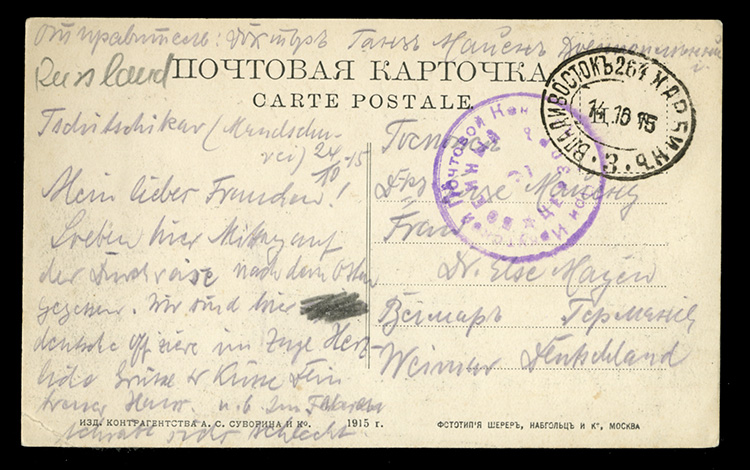 Отправитель: Докторъ Ганзъ Майенъ Военноплѣнный
Russland
ПОЧТОВАЯ КАРТОЧКА
CARTE POSTALE
ВЛАДИВОСТОКЪ 264 ХАРБИНЪ
14.10 15
3
Tschitschikar (Mandschu-
rei) 24/10 15
Mein lieber Frauchen!
Soeben hier Mittag auf
der Durchreise nach dem Osten
gegessen. Wir sind hier
deutsche Offiziere im Zuge Herz-
liche Grüsse & Küsse Dein
treuer Hans. n.b. Im Fahren
schreibt sichs schlecht.
Госпожа
Д-ръ Эльзе Майенъ
Frau
Dr. Else Mayen
Веймаръ Германiя
Weimar Deutschland
ИЗД. КОНТРАГЕНТСТВА А. С. СУВОРИНА И Ко. 1915 г.
ФОТОТИПIЯ ШЕРЕРЪ, НАБГОЛЬЦЪ И Ко, МОСКВА